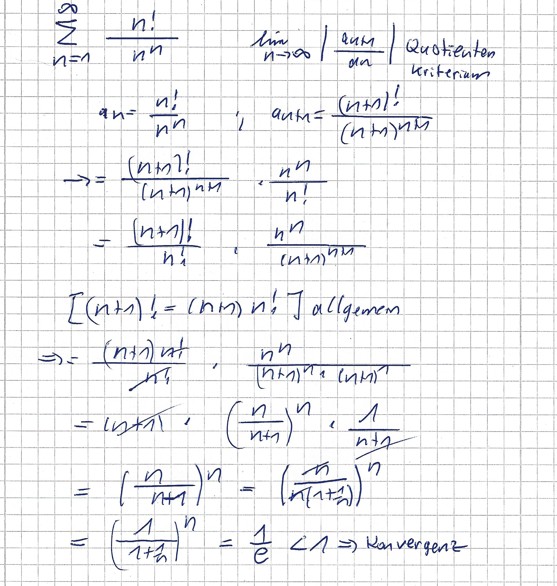 ∞ Σ n=1 n!/n^n lim n→∞ |a_{n+1}/a_n| Quotienten kriterium
a_n = n!/n^n ; a_{n+1} = (n+1)!/(n+1)^{n+1}
→ = (n+1)!/(n+1)^{n+1} · n^n/n!
= (n+1)!/n! · n^n/(n+1)^{n+1}
[(n+1)! = (n+1) n!] allgemein
⇒ = (n+1) n!/n! · n^n/((n+1)^n · (n+1)^1)
= (n+1) · (n/(n+1))^n · 1/(n+1)
= (n/(n+1))^n = (n/(n(1+1/n)))^n
= (1/(1+1/n))^n = 1/e < 1 ⇒ Konvergenz